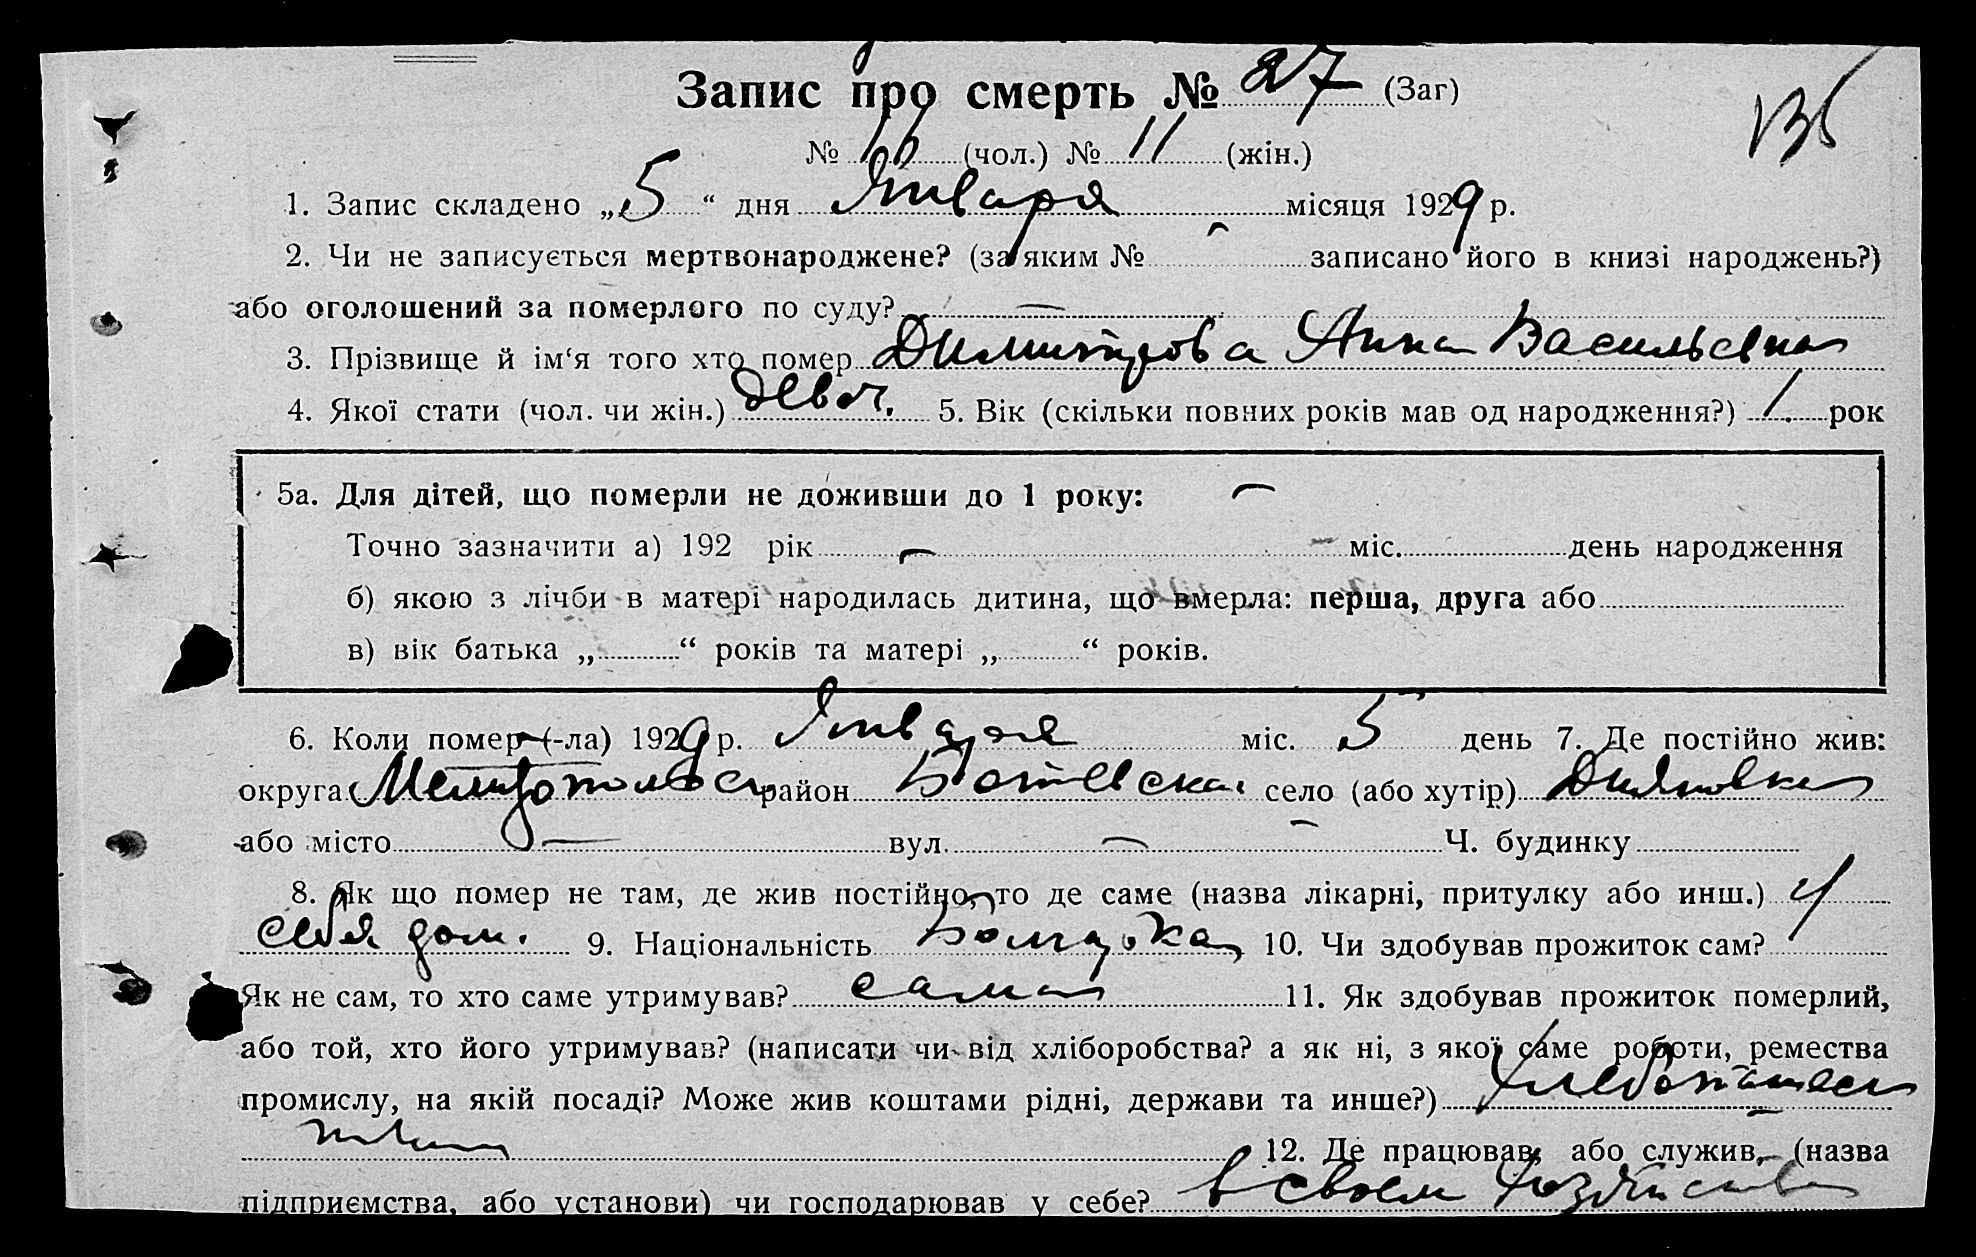 Запис про смерть № 27 (Заг)
136
№ 16 (чол.) № 11 (жін.)
1. Запис складено „ 5 “ дня Января місяця 1929 р.
2. Чи не записується мертвонароджене? (за яким № - записано його в книзі народжень?)
або оголошений за померлого по суду? —
3. Прізвище й ім‘я того хто помер Димитрова Анна Васильевна
4. Якої стати (чол. чи жін.) девоч. 5. Вік (скільки повних років мав од народження?) 1 рок
5а. Для дітей, що померли не доживши до 1 року: —
Точно зазначити а) 192 рік — міс. день народження
б) якою з лічби в матері народилась дитина, що вмерла: перша, друга або
в) вік батька „ “ років та матері „ “ років.
6. Коли помер (-ла) 1929 р. Января міс. 5 день 7. Де постійно жив:
округа Мелитопольск район Ботевская село (або хутір) Дияновка
або місто — вул. — Ч. будинку
8. Як що помер не там, де жив постійно, то де саме (назва лікарні, притулку або инш.) у
себя дом. 9. Національність Болгарка 10. Чи здобував прожиток сам?
Як не сам, то хто саме утримував? сама 11. Як здобував прожиток померлий,
або той, хто його утримував? (написати чи від хліборобства? а як ні, з якої саме роботи, ремества
промислу, на якій посаді? Може жив коштами рідні, держави та инше?) Хлебопашест
12. Де працював, або служив, (назва
підприємства, або установи) чи господарював у себе? в своем хозяйстве